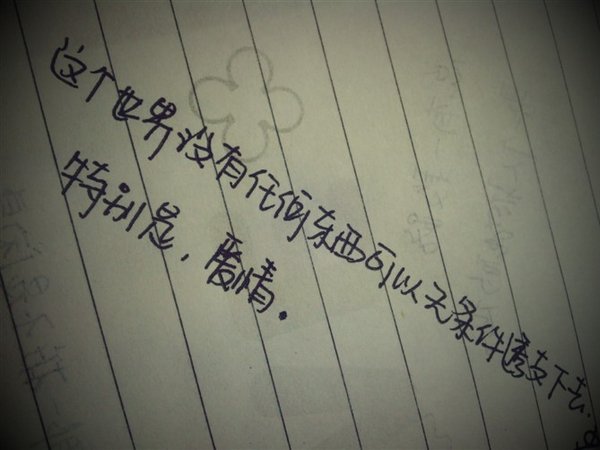 这个世界没有任何东西可以无条件透支下去.
特别是,爱情.